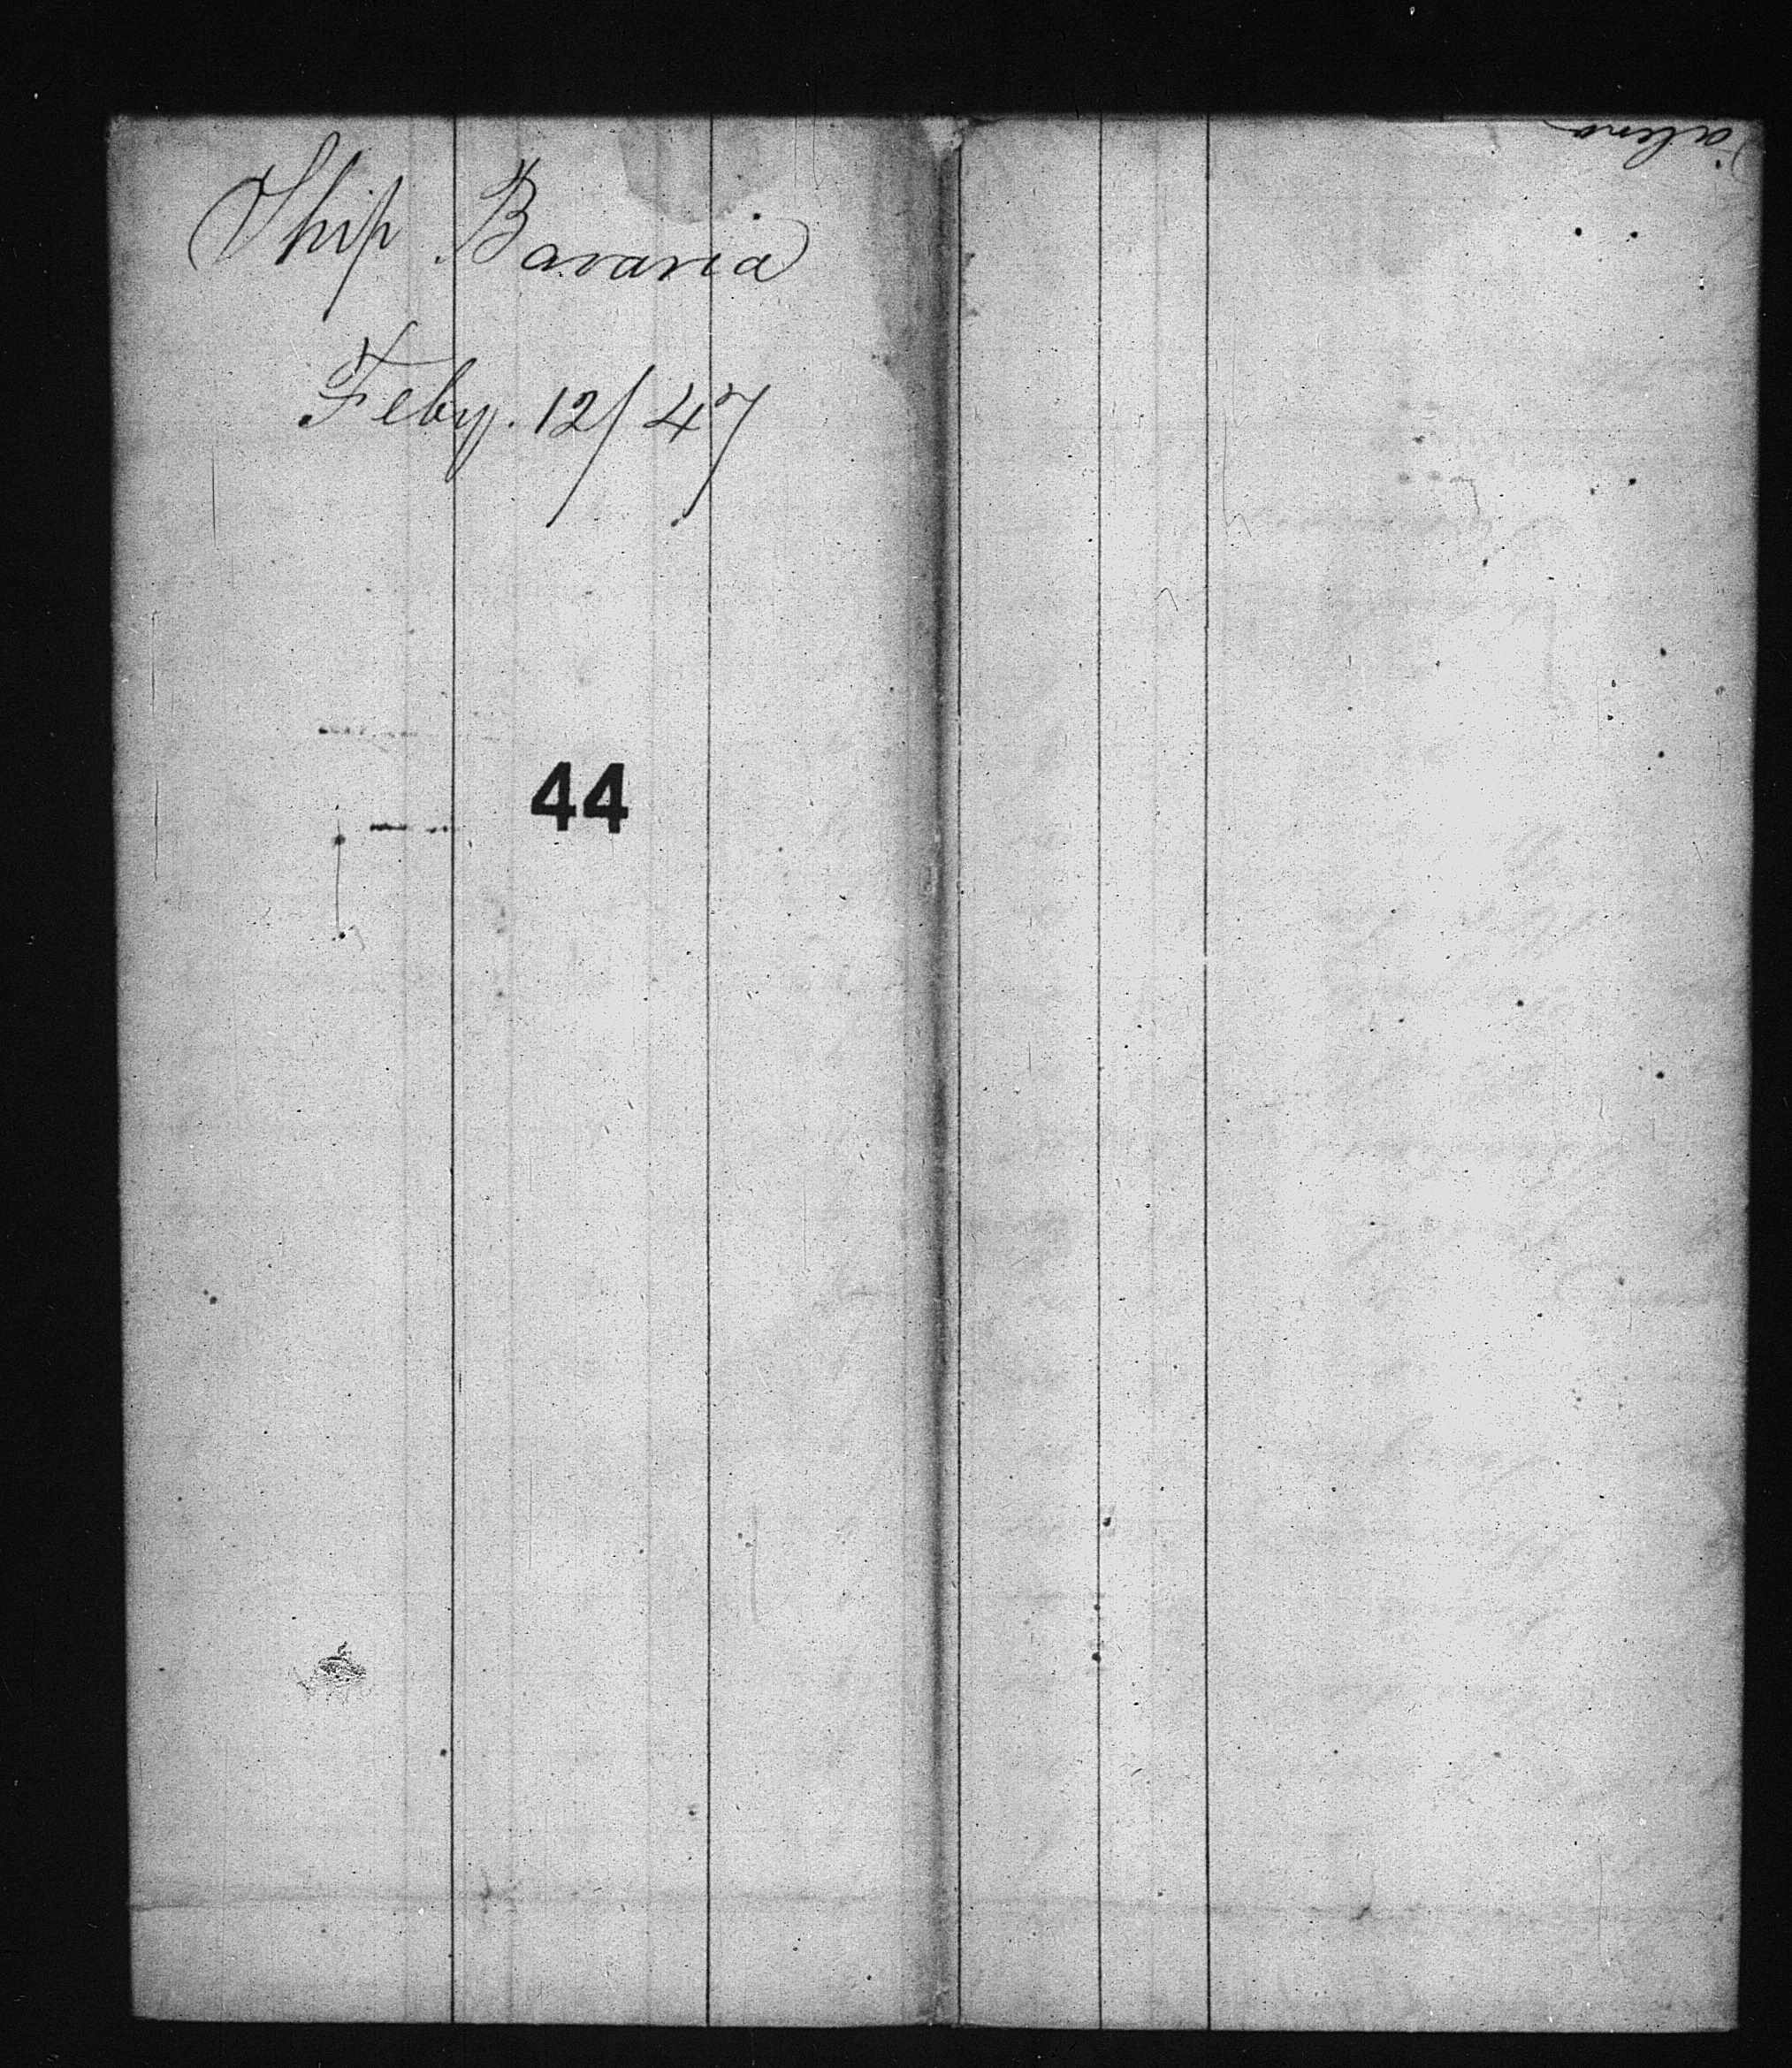 Ship Bavaria
Feby. 12/47
44